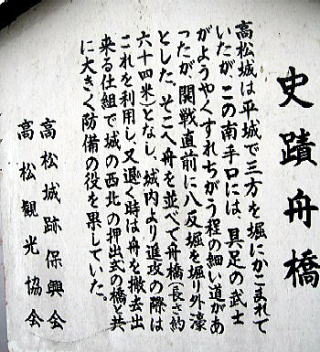 史蹟舟橋
高松城は平城で三方を堀にかこまれて
いたが、この南手口には、具足の武士
がようやくすれちがう程の細い道があ
ったが、関戦直前に八反堀を掘り外濠
とした。そこへ舟を並べて舟橋(長さ約
六十四米)となし、城内より進攻の際は
これを利用し、又退く時は舟を撤去出
来る仕組で城の西北の押出式の橋と共
に大きく防備の役を果していた。
高松城跡保興会
高松観光協会